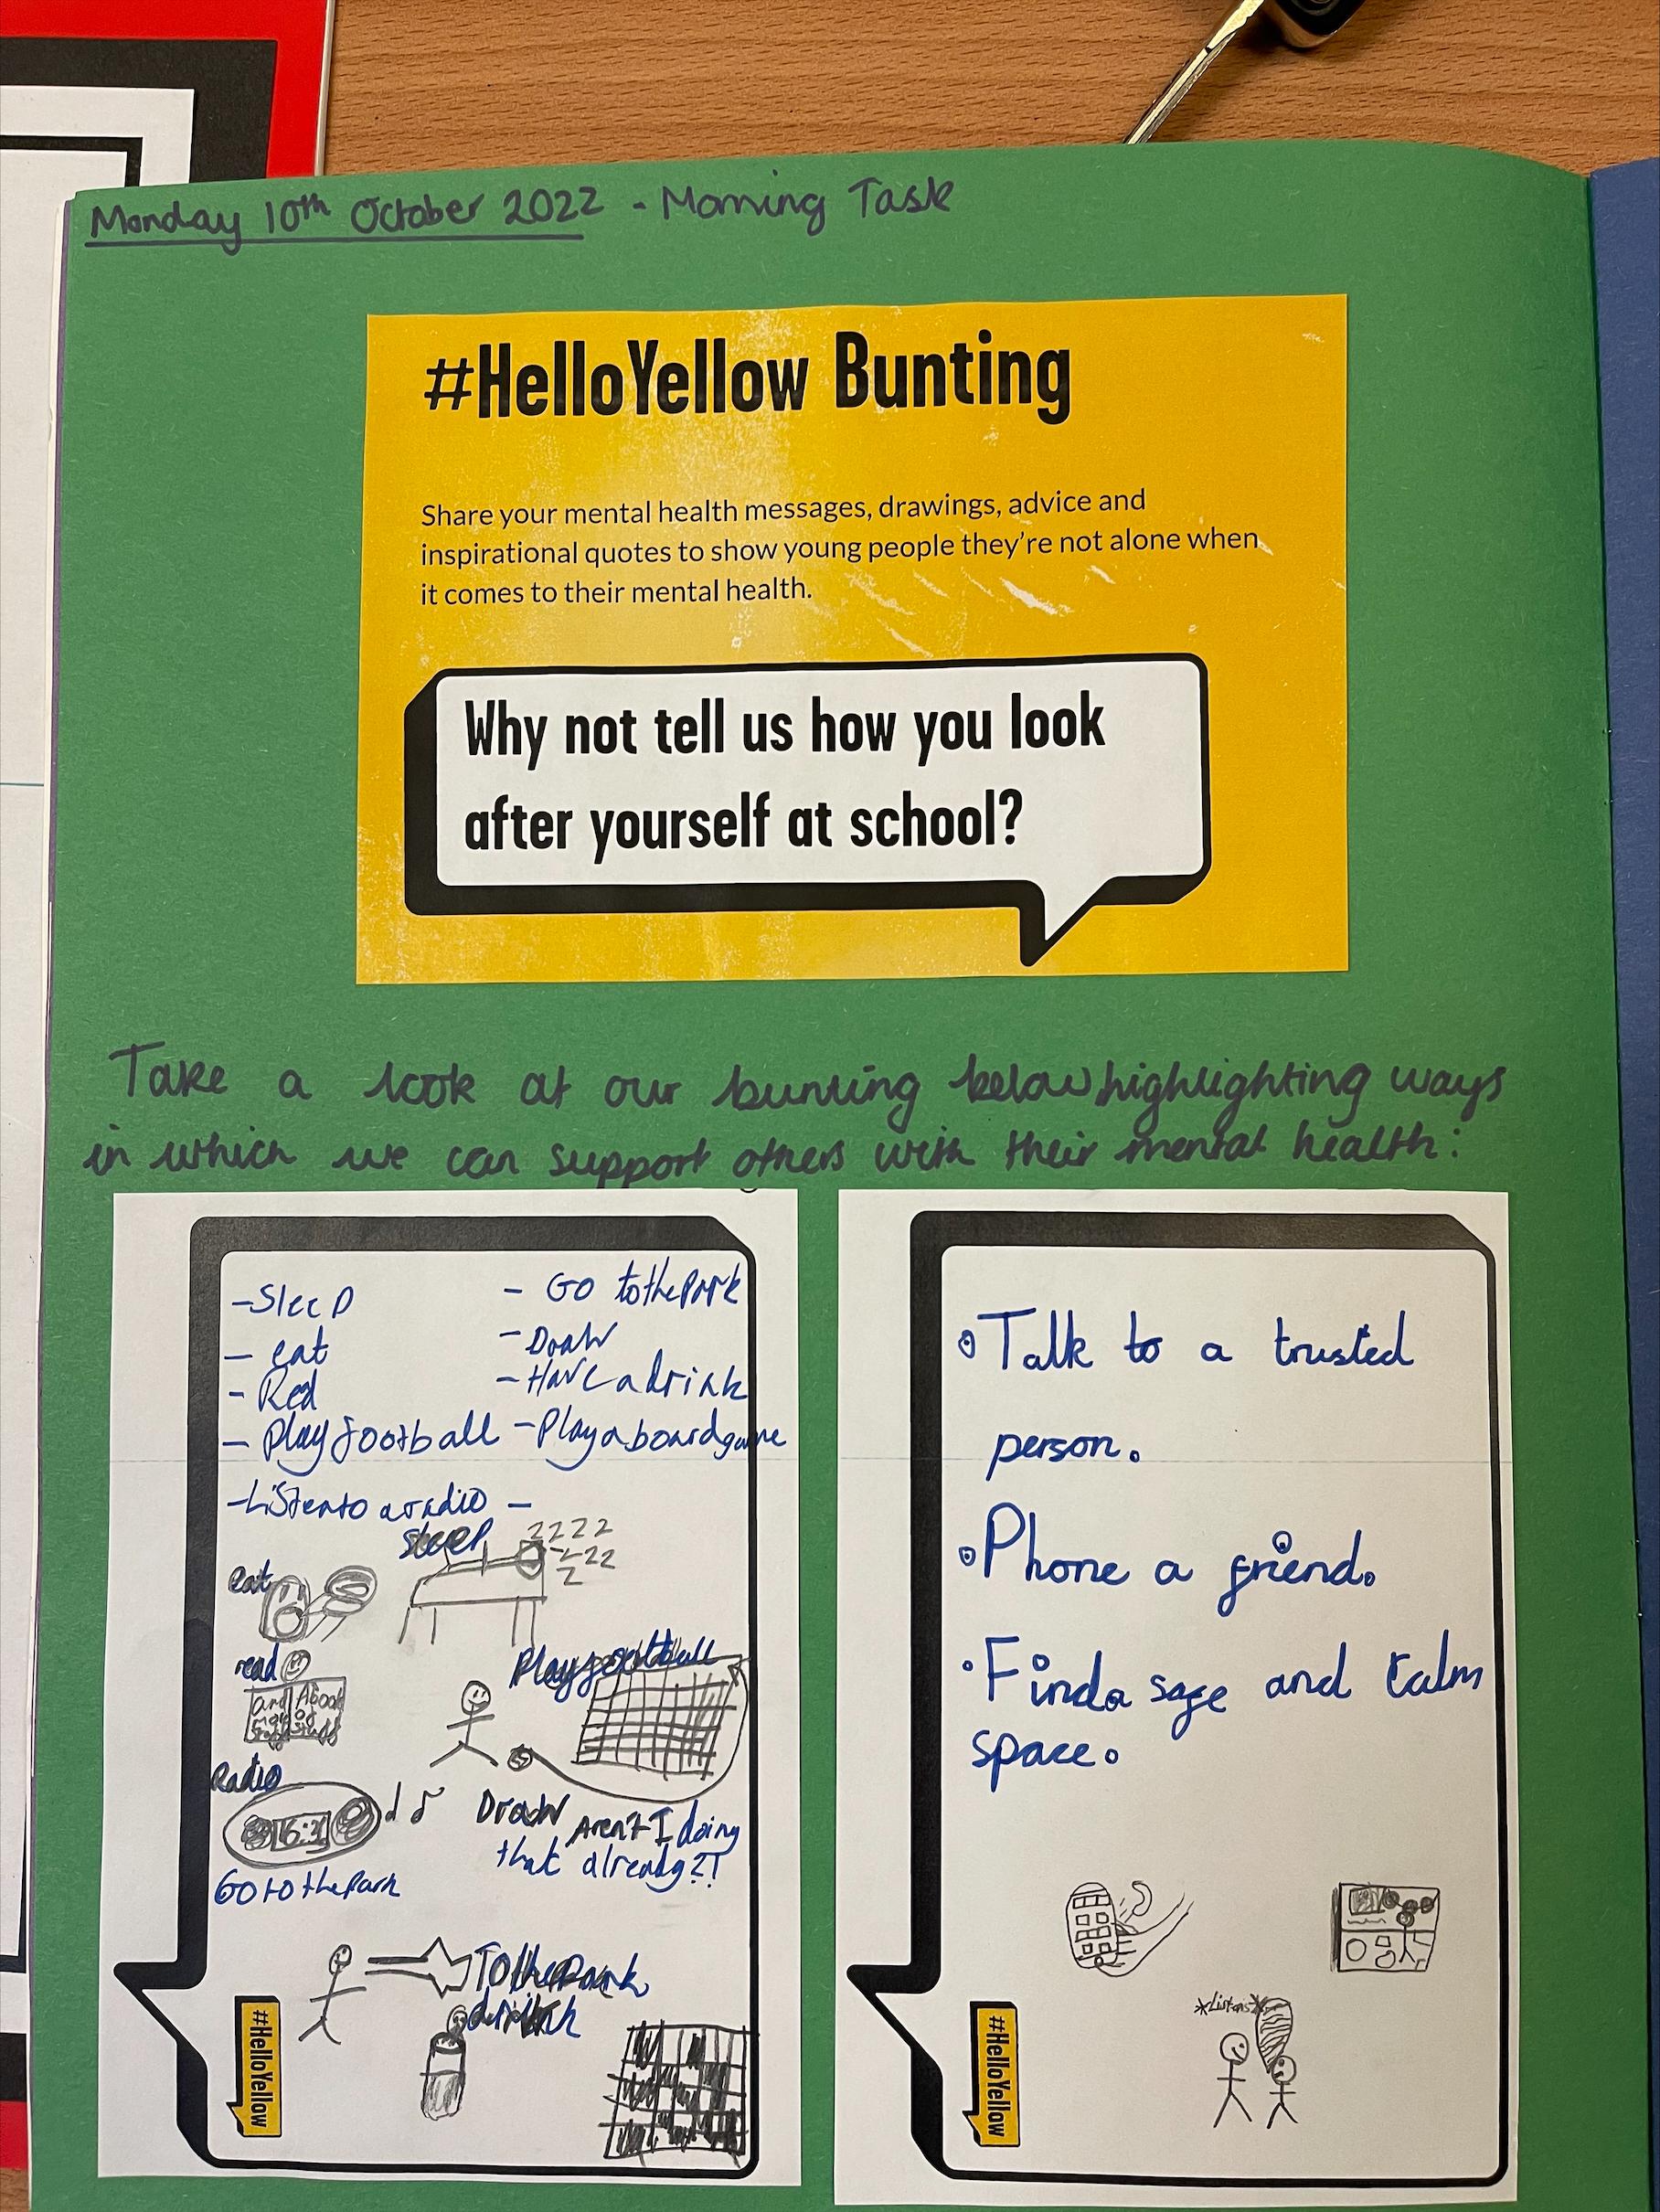 Monday 10th October 2022 - Morning Task
#HelloYellow Bunting
Share your mental health messages, drawings, advice and
inspirational quotes to show young people they're not alone when
it comes to their mental health.
Why not tell us how you look
after yourself at school?
Take a look at our bunting below highlighting ways
in which we can support others with their mental health:
-Sleep
- eat
- Red
- Play football
-Listen to a radio
- Go to the Park
- Draw
- Have a drink
- Play a board game
-
sleep
zzzz
zzz
z
eat
read
Play football
A book
of
Radio
Draw Aren't I doing
that already?!
Go to the Park
To the Park
drink
#HelloYellow
Talk to a trusted
person.
Phone a friend.
Find a safe and calm
space.
*Listens*
#HelloYellow